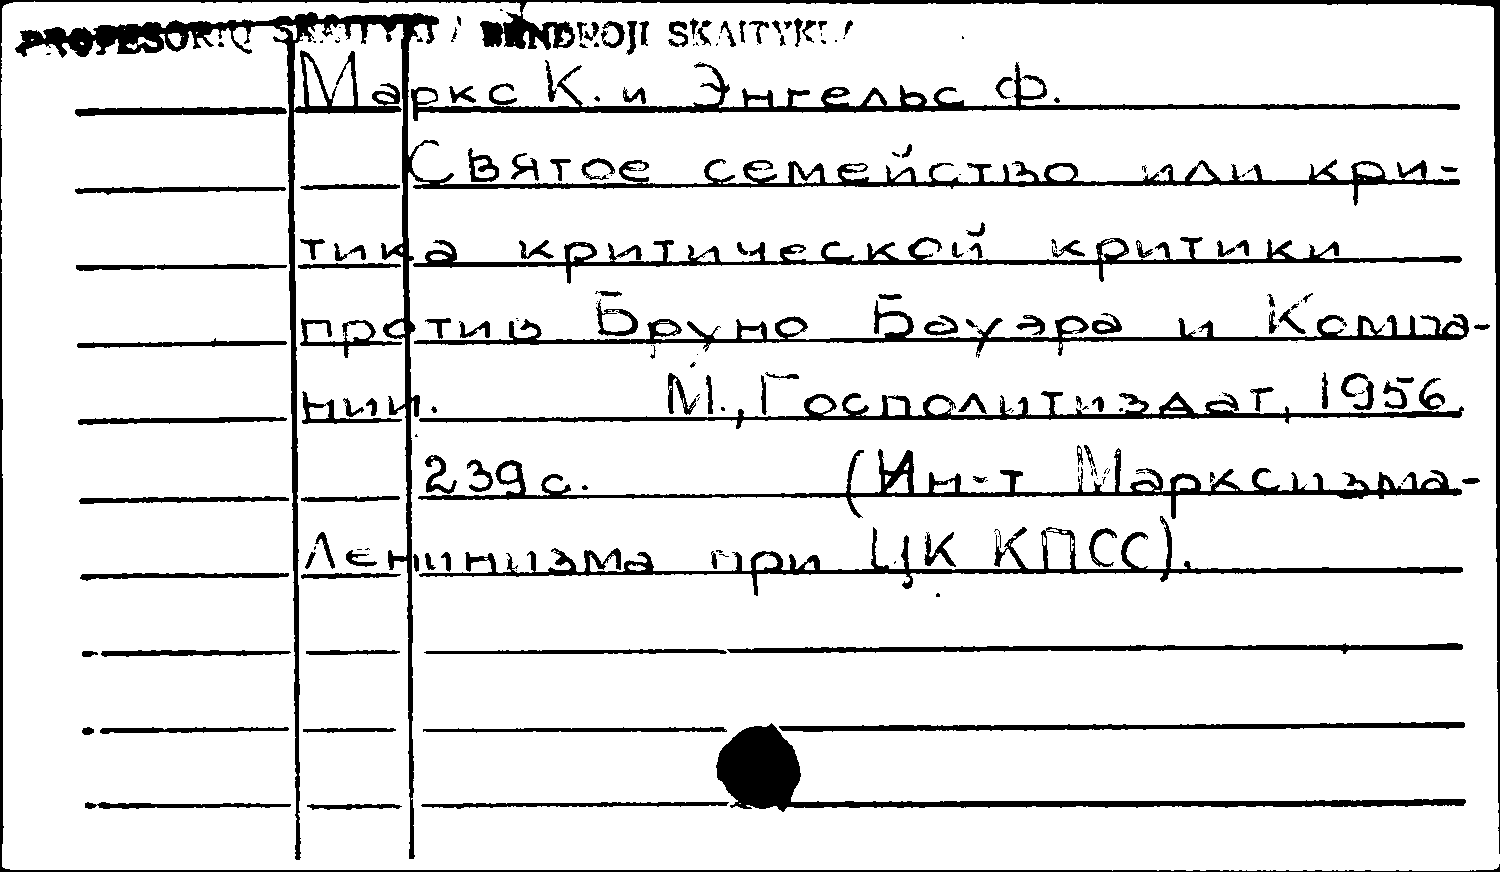 PROFESORIŲ SKAITYKL / BENDROJI SKAITYKL /
Маркс К. и Энгельс Ф.
Святое семейство или кри-
тика критической критики
против Бруно Бауэра и Компа-
нии. М., Госполитиздат, 1956.
239 с. (Ин-т Марксизма-
Ленинизма при ЦК КПСС).